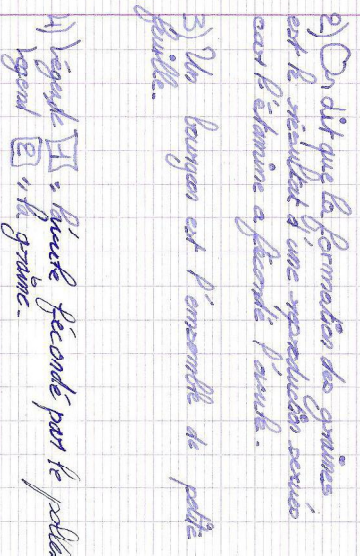 2) On dit que la formation des graines
est le résultat d'une reproduction sexués
car l'étamine a fécondé l'ovule.
3) Un bourgeon est l'ensemble de petite
feuille.
4) Légende 1 " l'ovule fécondé par le pollen
legend 2 " la graine.